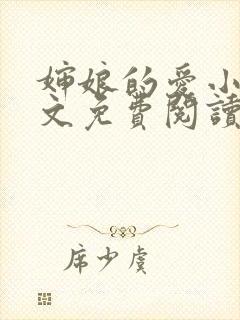 嬸娘的愛小
文免費閱讀
席少虞